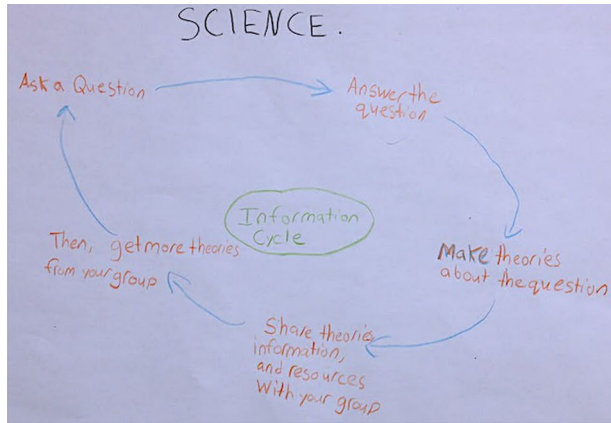 SCIENCE.
Ask a Question
Answer the
question
Make theories
about the question
Share theories,
information,
and resources
With your group
Then, get more theories
from your group
Information
Cycle